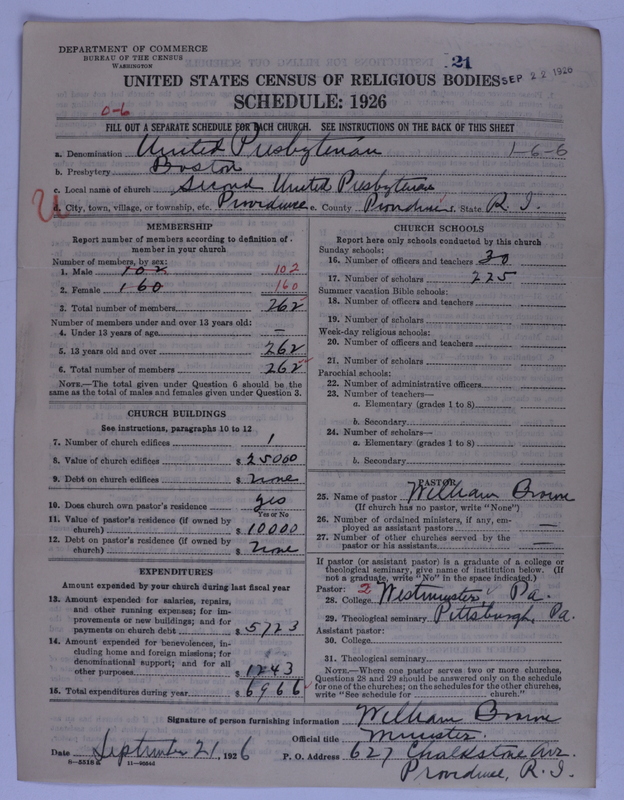 DEPARTMENT OF COMMERCE
BUREAU OF THE CENSUS
WASHINGTON
21
SEP 22 1926
UNITED STATES CENSUS OF RELIGIOUS BODIES
SCHEDULE: 1926
0-6
FILL OUT A SEPARATE SCHEDULE FOR EACH CHURCH. SEE INSTRUCTIONS ON THE BACK OF THIS SHEET
a. Denomination United Presbyterian 1-6-6
b. Presbytery Boston
c. Local name of church Second United Presbyterian
d. City, town, village, or township, etc. Providence e. County Providence f. State R. I.
MEMBERSHIP
Report number of members according to definition of member in your church
Number of members, by sex:
1. Male 102 102
2. Female 160 160
3. Total number of members 262
Number of members under and over 13 years old:
4. Under 13 years of age —
5. 13 years old and over 262
6. Total number of members 262
NOTE.—The total given under Question 6 should be the
same as the total of males and females given under Question 3.
CHURCH BUILDINGS
See instructions, paragraphs 10 to 12
7. Number of church edifices 1
8. Value of church edifices $ 25000
9. Debt on church edifices $ none
10. Does church own pastor's residence? yes
Yes or No
11. Value of pastor's residence (if owned by
church) $ 10000
12. Debt on pastor's residence (if owned by
church) $ none
EXPENDITURES
Amount expended by your church during last fiscal year
13. Amount expended for salaries, repairs,
and other running expenses; for im-
provements or new buildings; and for
payments on church debt $ 5723
14. Amount expended for benevolences, in-
cluding home and foreign missions; for
denominational support; and for all
other purposes $ 1243
15. Total expenditures during year $ 6966
CHURCH SCHOOLS
Report here only schools conducted by this church
Sunday schools:
16. Number of officers and teachers 30
17. Number of scholars 225
Summer vacation Bible schools:
18. Number of officers and teachers
19. Number of scholars
Week-day religious schools:
20. Number of officers and teachers
21. Number of scholars
Parochial schools:
22. Number of administrative officers
23. Number of teachers—
a. Elementary (grades 1 to 8)
b. Secondary
24. Number of scholars—
a. Elementary (grades 1 to 8)
b. Secondary
PASTOR
25. Name of pastor William Brown
(If church has no pastor, write "None")
26. Number of ordained ministers, if any, em-
ployed as assistant pastors —
27. Number of other churches served by the
pastor or his assistants —
If pastor (or assistant pastor) is a graduate of a college or
theological seminary, give name of institution below. (If
not a graduate, write "No" in the space indicated.)
Pastor: 2
28. College Westminster Pa.
29. Theological seminary Pittsburgh, Pa.
Assistant pastor:
30. College
31. Theological seminary
NOTE.—Where one pastor serves two or more churches,
Questions 28 and 29 should be answered only on the schedule
for one of the churches; on the schedules for the other churches,
write "See schedule for church."
Signature of person furnishing information William Brown
Official title Minister.
Date September 21, 1926 P. O. Address 627 Chalkstone Ave.
Providence, R. I.